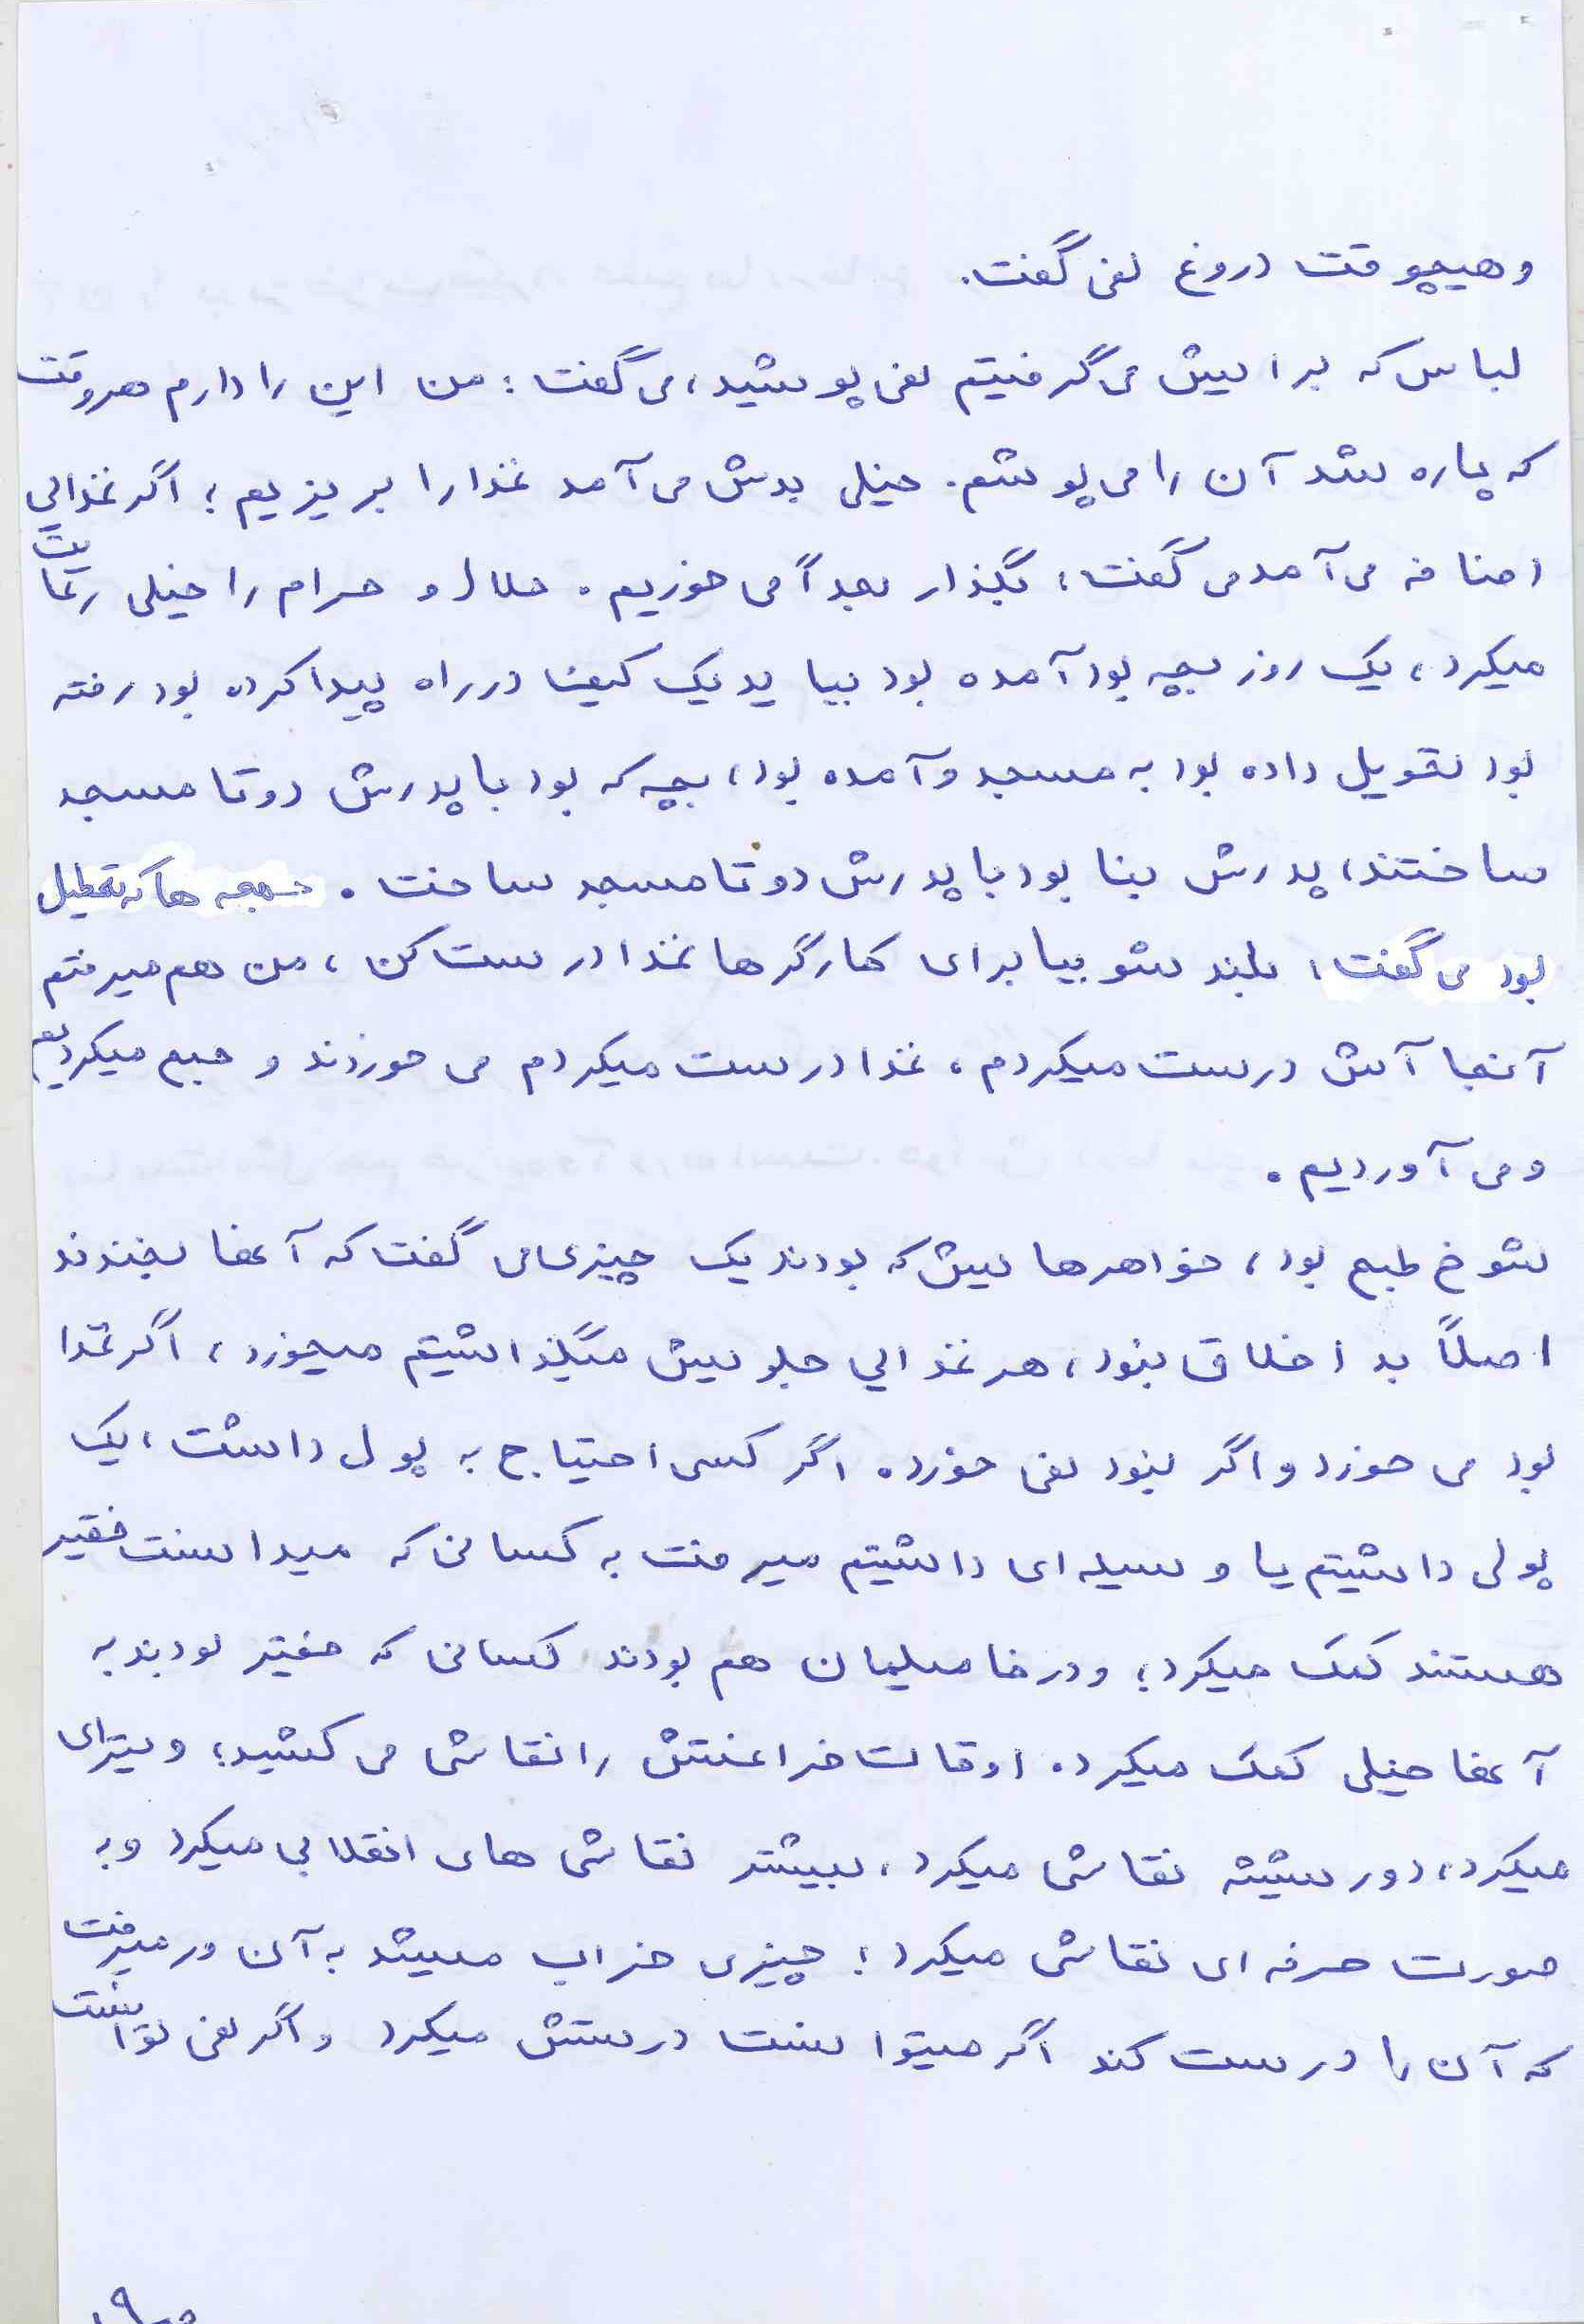 و هیچوقت دروغ نمی گفت.
لباس که برایش می گرفتیم نمی پوشید، می گفت: من این را دارم هروقت
که پاره شد آن را می پوشم. خیلی بدش می آمد غذا را بریزیم؛ اگر غذایی
اضافه می آمد می گفت: بگذار بعداً می خوریم. حلال و حرام را خیلی رعایت
میکرد، یک روز بچه بود آمده بود بیاید یک کیف در راه پیدا کرده بود رفته
بود تحویل داده بود به مسجد و آمده بود، بچه که بود با پدرش دو تا مسجد
ساختند، پدرش بنا بود با پدرش دو تا مسجد ساخت. جمعه ها که تعطیل
بود می گفت: بلند شو بیا برای کارگرها غذا درست کن، من هم میرفتم
آنجا آش درست میکردم، غذا درست میکردم می خوردند و جمع میکردیم
و می آوردیم.
شوخ طبع بود، خواهرهایش که بودند یک چیزی می گفت که آنها بخندند
اصلاً بد اخلاق نبود، هر غذایی جلویش میگذاشتیم میخورد، اگر غذا
بود می خورد و اگر نبود نمی خورد. اگر کسی احتیاج به پول داشت، یک
پولی داشتیم یا وسیله ای داشتیم میرفت به کسانی که میدانست فقیر
هستند کمک میکرد؛ و در فامیلمان هم بودند کسانی که فقیر بودند به
آنها خیلی کمک میکرد. اوقات فراغتش را نقاشی می کشید؛ ویترای
میکرد، دور شیشه نقاشی میکرد، بیشتر نقاشی های انقلابی میکرد و به
صورت حرفه ای نقاشی میکرد؛ چیزی خراب میشد به آن ور میرفت
که آن را درست کند اگر میتوانست درستش میکرد و اگر نمی توانست